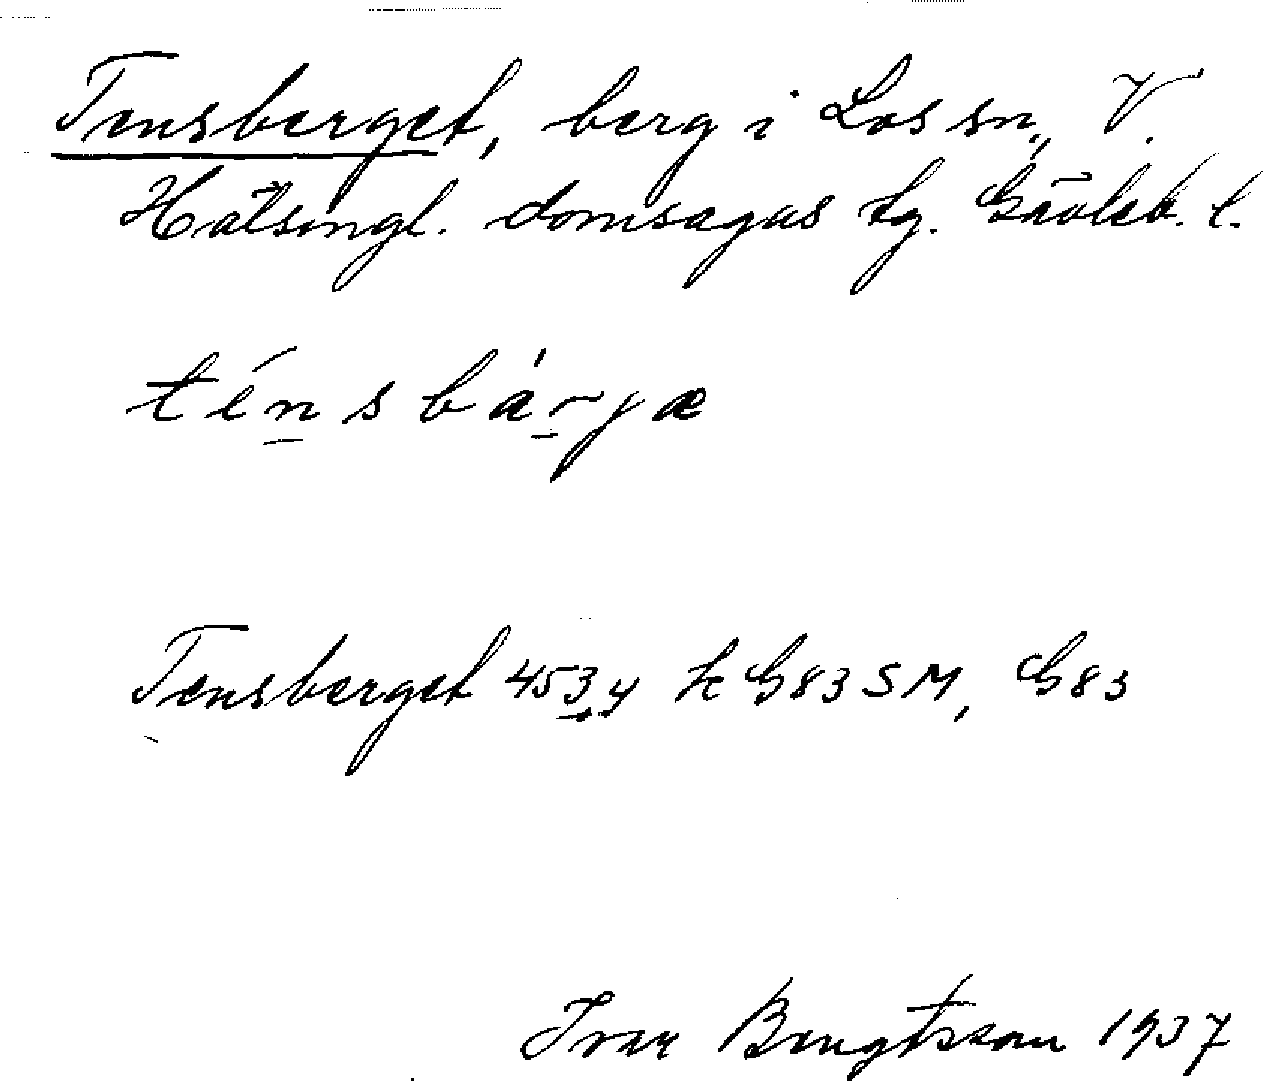 Tensberget, berg i Los sn., V.
Hälsingl. domsagas tg. Gävleb. l.
ténsbárjæ
Tensberget 453,4 k G83SM, G83
Ivar Bengtsson 1937